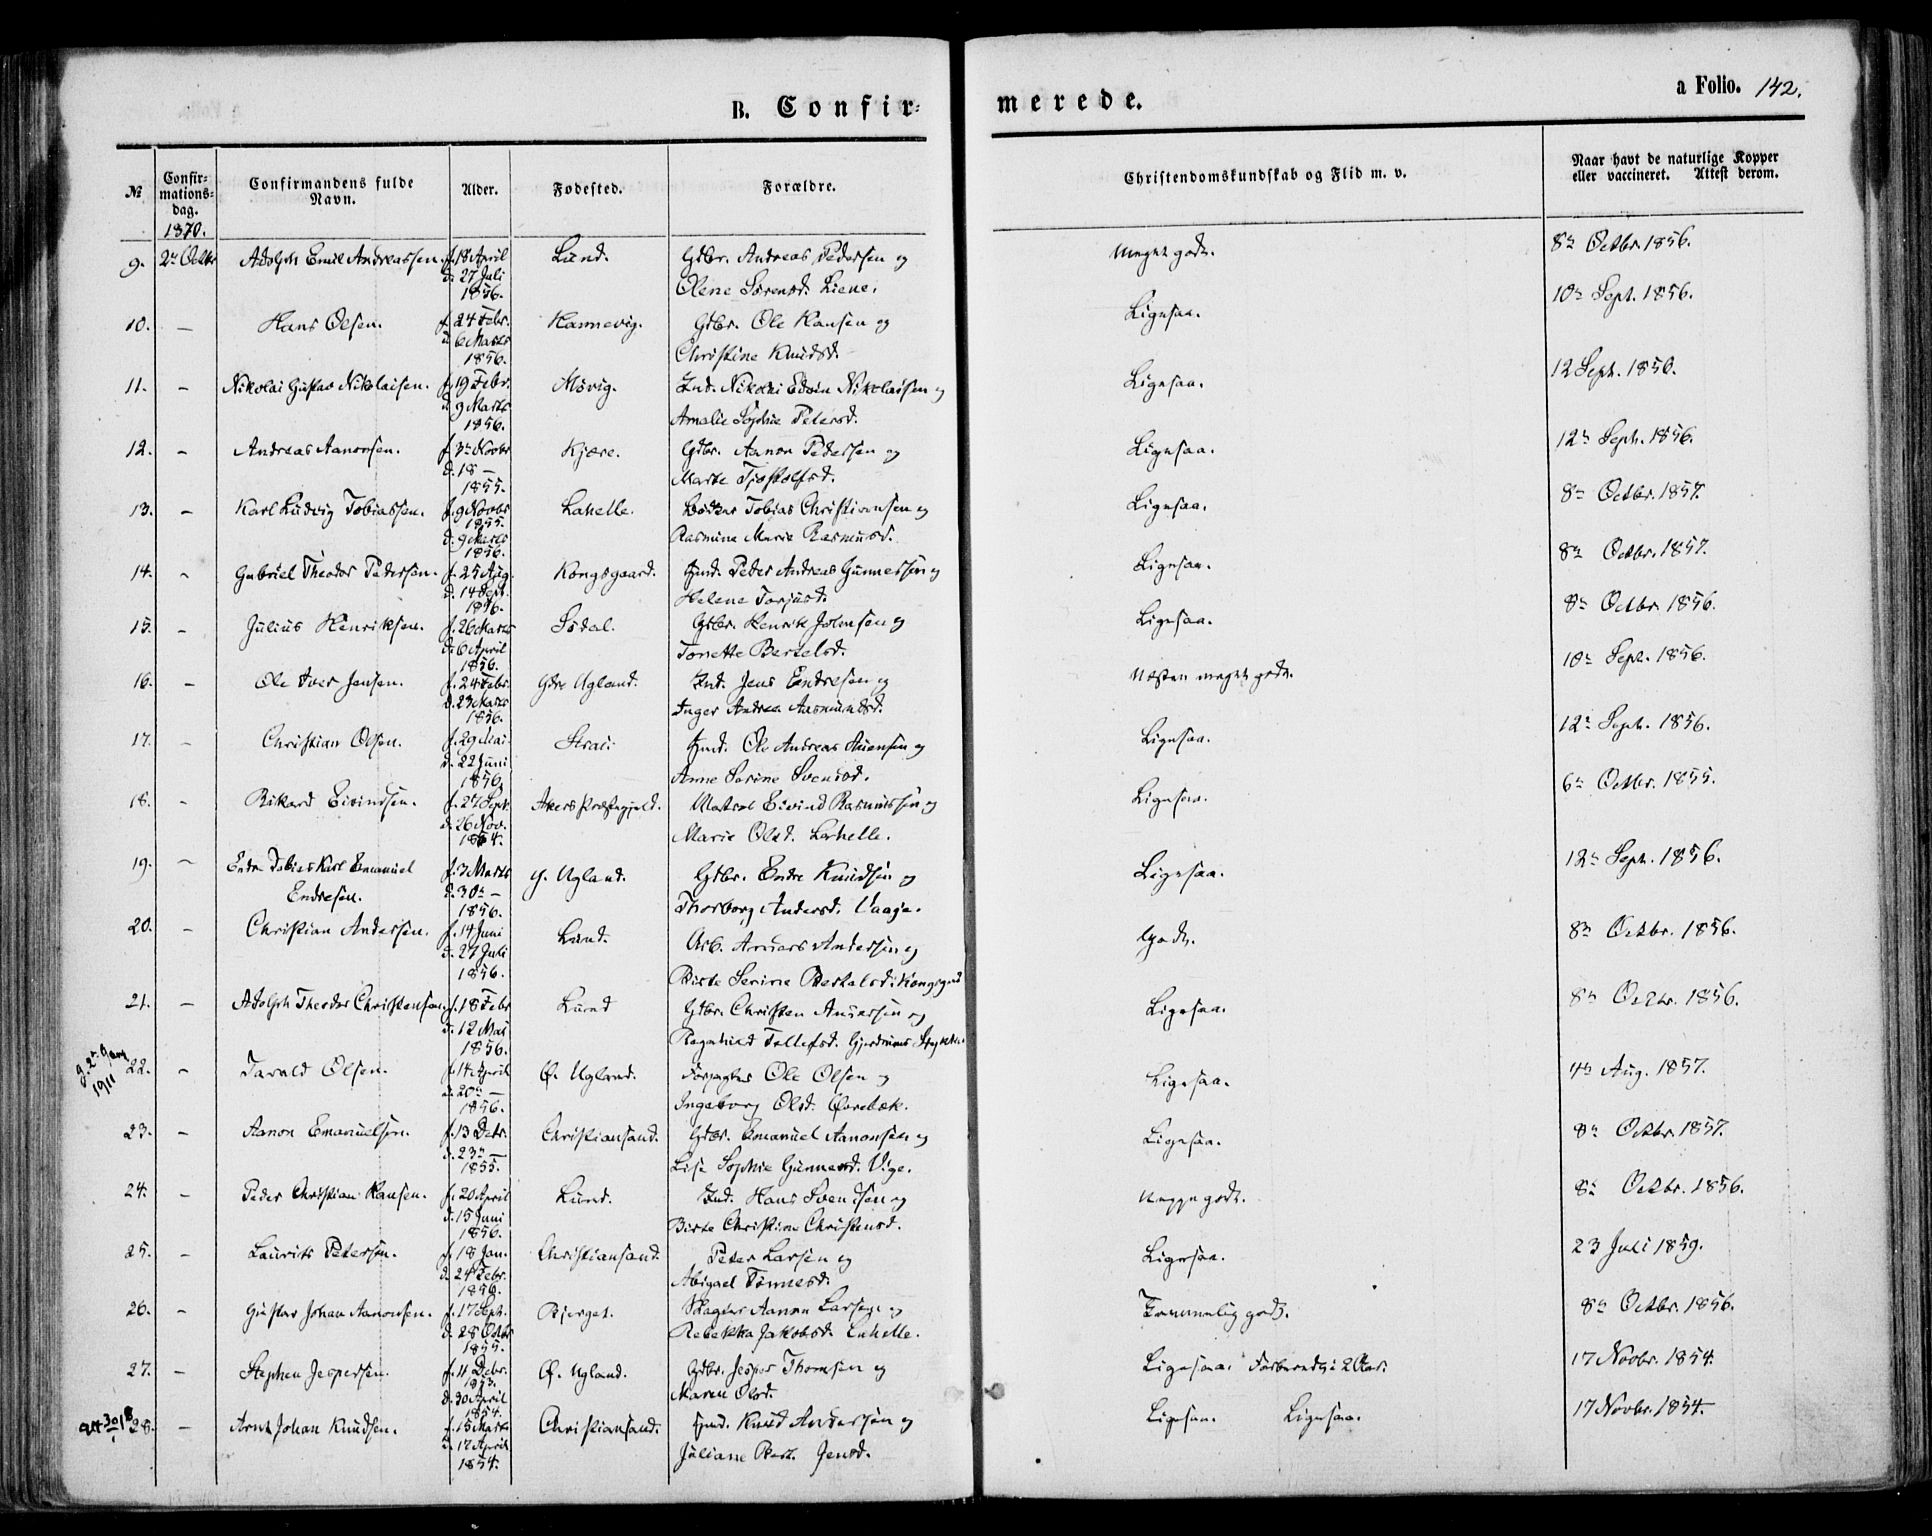 B. Confir-
merede.
a Folio. 142.
№
Confir-
mations-
dag.
1870.
Confirmandens fulde
Navn.
Alder.
Fødested.
Forældre.
Christendomskundskab og Flid m. v.
Naar havt de naturlige Kopper
eller vaccineret. Attest derom.
9. 2n Octbr Adolph Emil Andreassen. f. 18 April Lund. Gdbr. Andreas Pedersen og Meget godt. 8n Octbr. 1856.
d. 27 Juli
1856. Olene Sørensd. Liene.
10. – Hans Olsen. f. 24 Febr. Hannevig. Gdbr. Ole Hansen og Ligesaa. 10n Sept. 1856.
d. 6 Marts
1856. Christine Knudsd.
11. – Nikolai Gustav Nikolaisen. f. 19 Febr. Møvig. Ind. Nikolai Edvin Nikolaisen og Ligesaa. 12 Sept. 1856.
d. 9 Marts
1856. Amalie Sophie Petersd.
12. – Andreas Aanonsen. f. 3n Novbr Kjære. Gdbr. Aanon Pedersen og Ligesaa. 12n Sept. 1856.
d. 18 –
1855. Marte Tjøstolfsd.
13. – Karl Ludvig Tobiassen. f. 9 Novbr Lahelle. Tobias Christiansen og Ligesaa. 8n Octbr. 1857.
1855.
d. 9 Marts
1856. Rasmine Marie Rasmusd.
14. – Gabriel Theodor Pedersen. f. 25 Aug. Kongsgaard. Ind. Peder Andreas Gunnersen og Ligesaa. 8n Octbr. 1857.
d. 14 Sept.
1856. Helene Torjusd.
15. – Julius Henriksen. f. 26 Marts Sødal. Gdbr. Henrik Johnsen og Ligesaa. 8n Octbr. 1856.
d. 6 April
1856. Tonette Bertelsd.
16. – Ole Iver Jensen. f. 24 Febr. Ydre Ugland. Ind. Jens Endresen og Næsten meget godt. 10n Sept. 1856.
d. 23 Marts
1856. Inger Andrea Aasmundsd.
17. – Christian Olsen. f. 29 Mai Strai. Ind. Ole Andreas og Ligesaa. 12n Sept. 1856.
d. 22 Juni
1856. Anne Serine Svensd.
18. – Rikard Eivindsen. f. 27 Sept. Akers Præstegjeld. Matros Eivind Rasmussen og Ligesaa. 6n Octbr. 1855.
d. 26 Nov.
1854. Marie Olsd. Lahelle.
19. – Endre Tobias Karl Emanuel f. 3 Marts y. Ugland. Gdbr. Endre Knudsen og Ligesaa. 12n Sept. 1856.
Endresen. d. 30n –
1856. Thorborg Andersd. Vaage.
20. – Christian Andersen. f. 14 Juni Lund. Arb. Anders Andersen og Godt. 8n Octbr. 1856.
d. 27 Juli
1856. Birte Serine Bertelsd. Kongsgaard
21. – Adolph Theodor Christensen. f. 18 Febr Lund Gdbr. Christen Andersen og Ligesaa. 8n Octbr. 1856.
d. 12 Mai
1856. Ragnhild Tellefsd. Gjerdmuns
g. 2n Gang
1911
22. – Tarald Olsen. f. 14 April Ø. Ugland. Forpagter Ole Olsen og Ligesaa. 4n Aug. 1857.
d. 20n –
1856. Ingeborg Olsd. Øvrebæk.
23. – Aanon Emanuelsen. f. 13 Debr. Christiansand. Gdbr. Emanuel Aanonsen og Ligesaa. 8n Octbr. 1857.
d. 23n –
1855. Lise Sophie Gunnersd. Vige.
24. – Peder Christian Hansen. f. 20 April Lund. Ind. Hans Svendsen og Neppe godt. 8n Octbr. 1856.
d. 15 Juni
1856. Birte Christine Christensd.
25. – Laurits Petersen. f. 18 Jan. Christiansand. Peter Larsen og Ligesaa. 23 Juli 1859.
d. 24 Febr.
1856. Abigael Tønnesd.
26. – Gustav Johan Aanonsen. f. 17 Sept. Bjerget. Aanon Larsen og Temmelig godt. 8n Octbr. 1856.
d. 28 Octbr
1855. Rebekka Jakobsd. Lahelle.
27. – Stephen Jespersen. f. 11 Debr. Ø. Ugland. Gdbr. Jesper Thomsen og Ligesaa. Forberedt i 2 Aar. 17 Novbr. 1854.
1853.
d. 30 April
1854. Maren Olsd.
28. – Arnt Johan Knudsen. f. 15 Marts Christiansand. Ind. Knud Andersen og Ligesaa. Ligesaa. 17 Novbr. 1854.
d. 17 April
1854. Juliane Jensd.